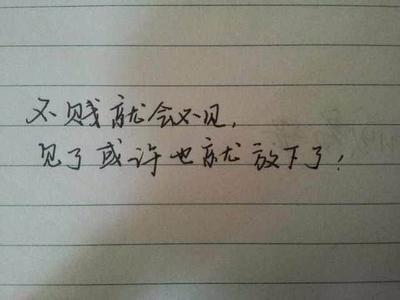 不贱就会不见，
见了或许也就放下了！